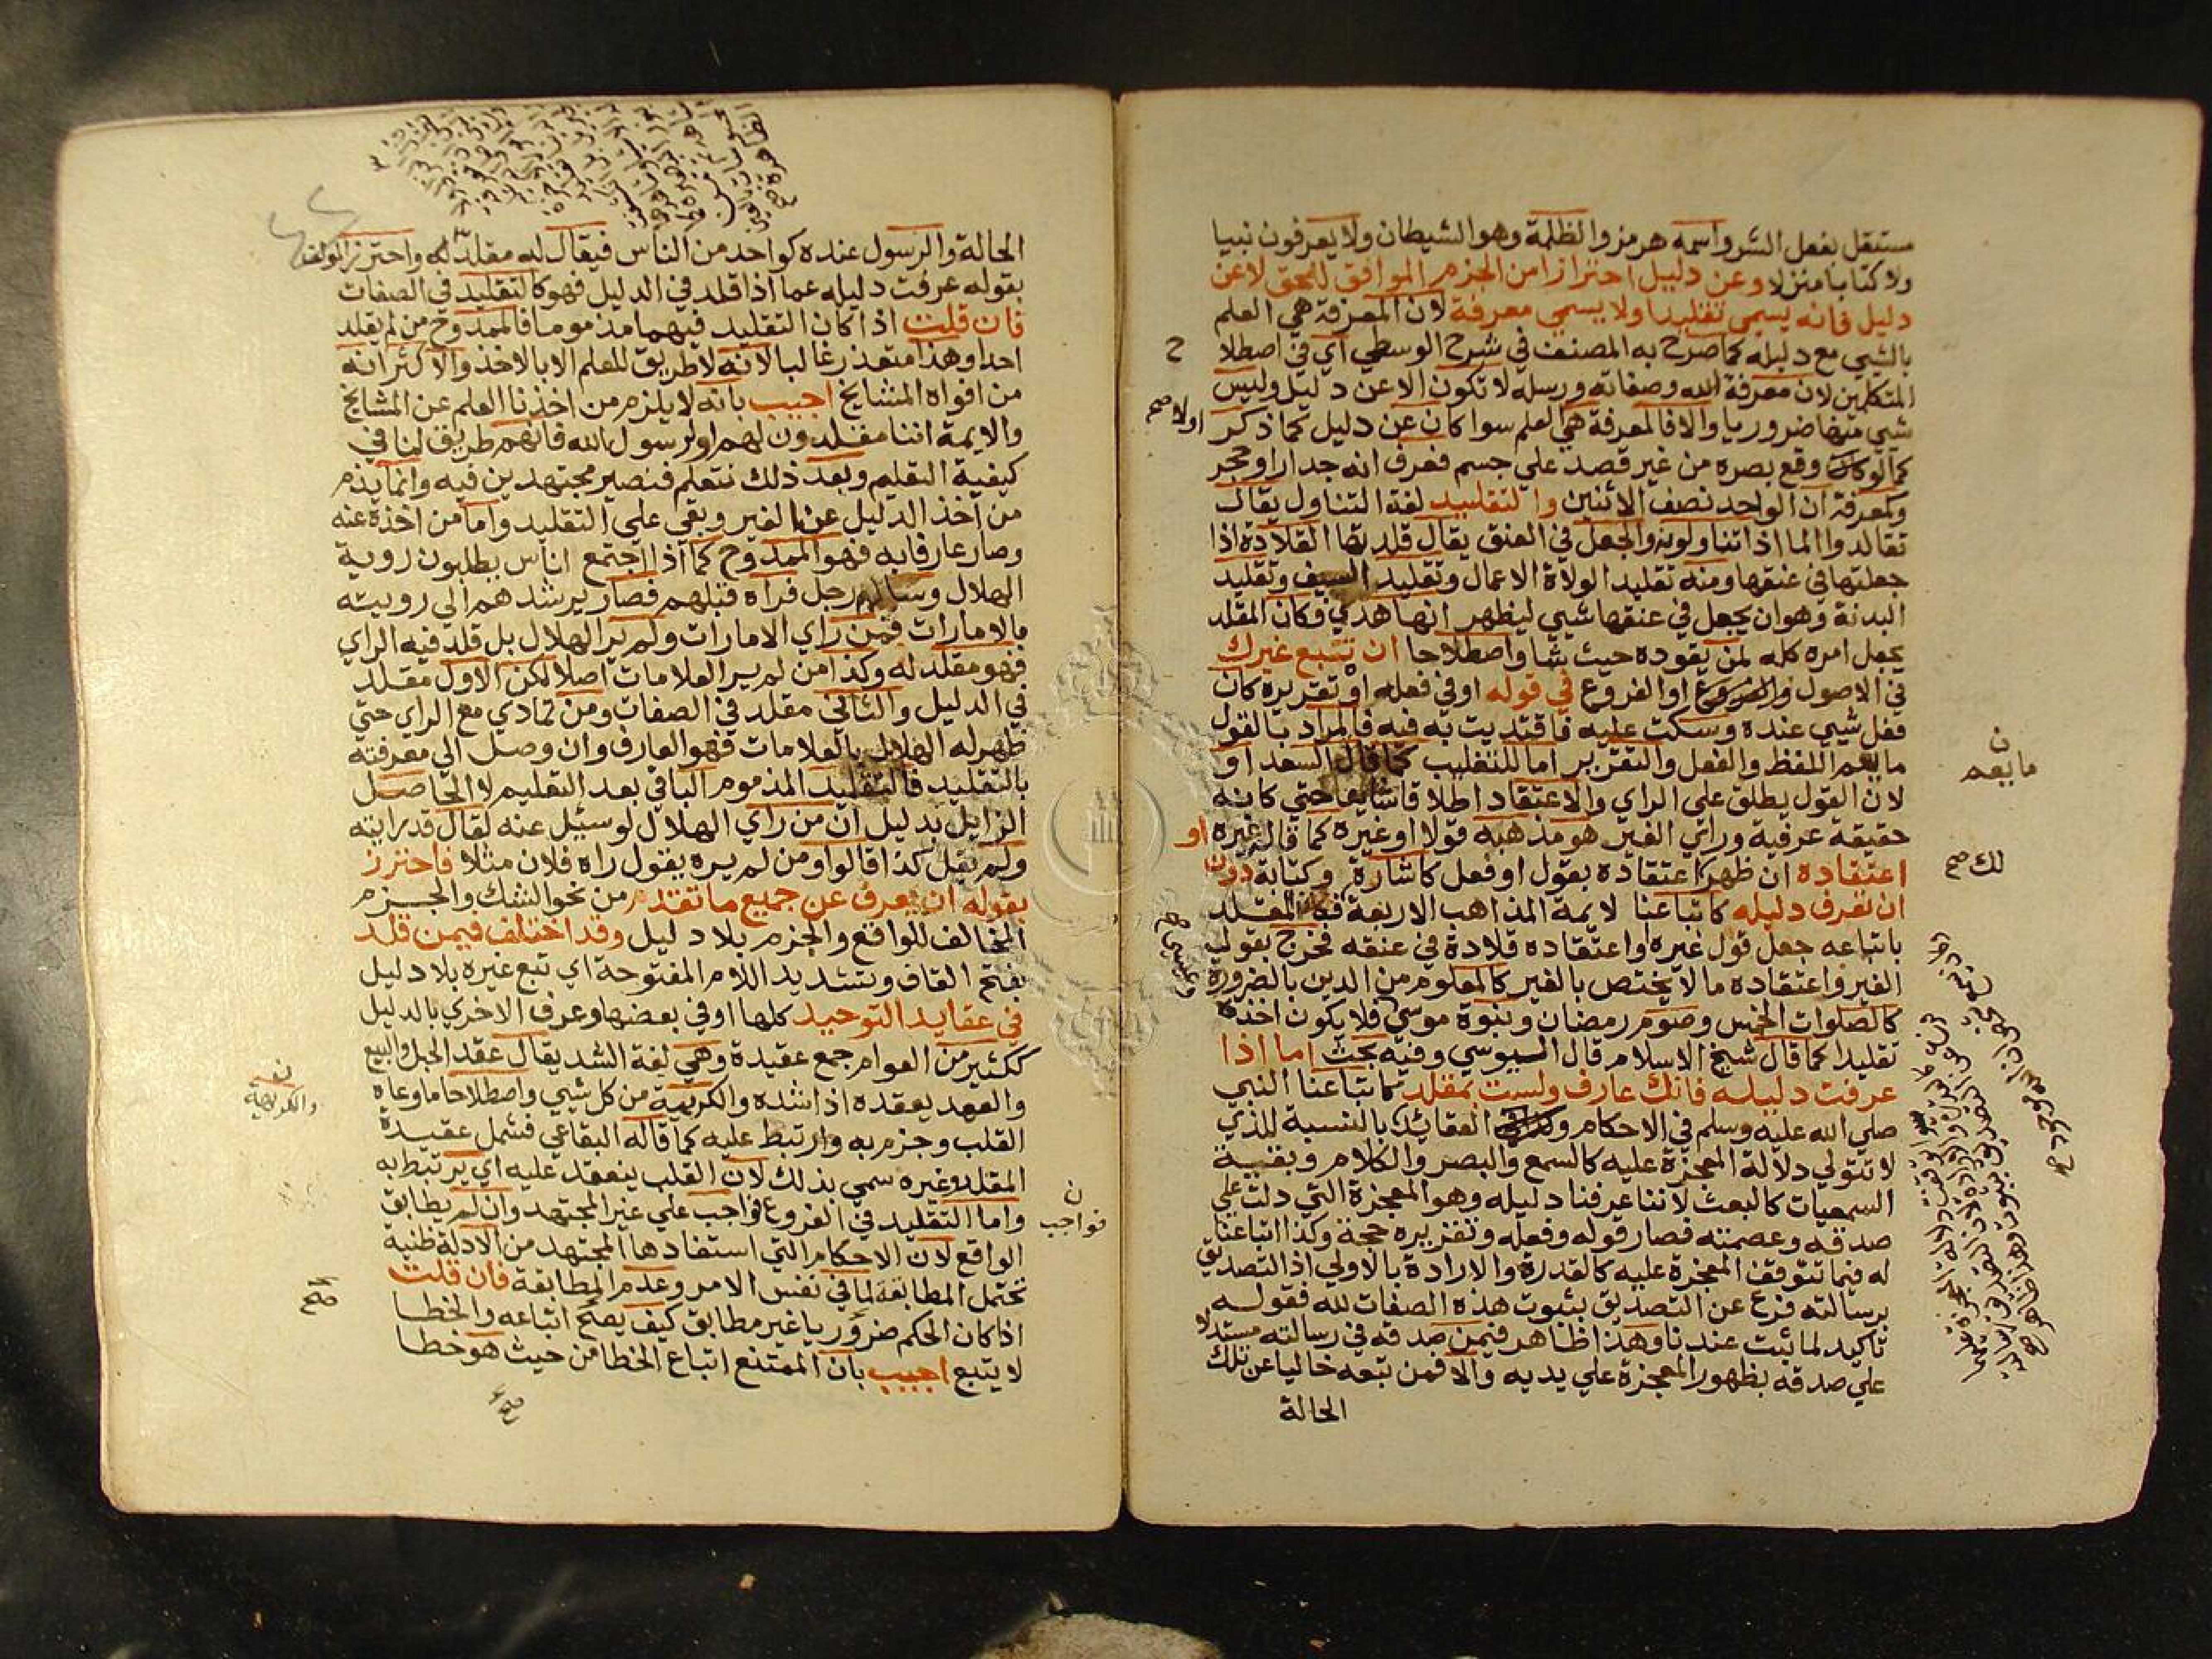 مستقل بفعل الشر واسمه هرمز والظلمة وهو الشيطان ولا يعرفون نبيا
ولا كتابا منزلا وعن دليل احترازا من الجزم الموافق للحق لا عن
دليل فانه يسمى تقليدا ولا يسمي معرفة لان المعرفة هي العلم
بالشي مع دليله كما صرح به المصنف في شرح الوسطي اي في اصطلا
ح
المتكلمين لان معرفة الله وصفاته ورسله لا تكون الا عن دليل وليس
شي منها ضروريا والا فالمعرفة هي العلم سوا كان عن دليل كما ذكر
اولا صح
كما لو كان وقع بصره من غير قصد علي جسم فعرف انه جدار او حجر
وكمعرفة ان الواحد نصف الاثنين والتقليد لغة التناول يقال
تقالدوا الما اذا تناولوه والجعل في العنق يقال قلدتها القلادة اذا
جعلتها في عنقها ومنه تقليد الولاة الاعمال وتقليد السيف وتقليد
البدنة وهو ان يجعل في عنقها شيي ليظهر انها هدي فكان المقلد
يجعل امره كله لمن يقوده حيث شا واصطلاحا ان تتبع غيرك
في الاصول او الفروع في قوله او في فعله او تقريره كان
فعل شيي عنده وسكت عليه فاقتديت به فيه فالمراد بالقول
ما يعم اللفظ والفعل والتقرير اما للتغليب كما قال السعد او
ن
ما يعم
لان القول يطلق علي الراي والاعتقاد اطلاقا شايعا حتي كانه
حقيقة عرفية وراي الغير هو مذهبه قولا او غيره كما قاله غيره او
اعتقاده ان ظهر اعتقاده بقول او فعل كاشارة وكتابة دون
لك صح
ان تعرف دليله كاتباعنا لايمة المذاهب الاربعة فكان المقلد
باتباعه جعل قول غيره واعتقاده قلادة في عنقه فخرج بقول
الغير واعتقاده ما لا يختص بالغير كالمعلوم من الدين بالضرورة
كالصلوات الخمس وصوم رمضان ونبوة موسي فلا يكون اخذه
وعيسي صح
تقليدا كما قال شيخ الاسلام قال السيوسي وفيه بحث اما اذا
عرفت دليله فانك عارف ولست بمقلد كاتباعنا النبي
صلي الله عليه وسلم في الاحكام العقائد بالنسبة للذي
لا تتولي دلالة المعجزة عليه كالسمع والبصر والكلام وبقية
السمعيات كالبعث لاننا عرفنا دليله وهو المعجزة التي دلت علي
صدقه وعصمته فصار قوله وفعله وتقريره حجة وكذا اتباعنا
له فيما تتوقف المعجزة عليه كالقدرة والارادة بالاولي اذ التصديق
برسالته فرع عن التصديق بثبوت هذه الصفات لله فقوله
تاكيد لما ثبت عندنا وهذا ظاهر فيمن صدقه في رسالته مستدلا
علي صدقه بظهور المعجزة علي يديه والا فمن تبعه خاليا عن تلك
الحالة
الحالة والرسول عنده كواحد من الناس فيقال له مقلد له واحترز المولف
بقوله عرفت دليله عما اذا قلد في الدليل فهو كالتقليد في الصفات
فان قلت اذا كان التقليد فيهما مذموما فالممدوح من لم يقلد
احدا وهذا متعذر غالبا لانه لا طريق للعلم الا بالاخذ والاكثر انه
من افواه المشايخ اجيب بانه لا يلزم من اخذنا العلم عن المشايخ
والايمة اننا مقلدون لهم او لرسول الله فانهم طريق لنا في
كيفية التعليم وبعد ذلك نتعلم فنصير مجتهدين فيه وانما يذم
من اخذ الدليل عن الغير وبقي علي التقليد واما من اخذه عنه
وصار عارفا به فهو الممدوح كما اذا اجتمع اناس يطلبون روية
الهلال وسالهم رجل فراه قبلهم فصار يرشدهم الي روييته
بالامارات فمن راي الامارات ولم ير الهلال بل قلد فيه الراي
فهو مقلد له وكذا من لم ير العلامات اصلا لكن الاول مقلد
في الدليل والثاني مقلد في الصفات ومن تمادي مع الراي حتي
ظهر له الهلال بالعلامات فهو العارف وان وصل الي معرفته
بالتقليد فالتقليد المذموم الباقي بعد التعليم لا الحاصل
الزايل بدليل ان من راي الهلال لو سئيل عنه لقال قد رايته
ولم يقل كذا قالوا ومن لم يره يقول راه فلان مثلا فاحترز
بقوله ان يعرف عن جميع ما تقدم من نحو الشك والجزم
المخالف للواقع والجزم بلا دليل وقد اختلف فيمن قلد
بفتح القاف وتشديد اللام المفتوحة اي تبع غيره بلا دليل
في عقايد التوحيد كلها او في بعضها وعرف الاخري بالدليل
ككثير من العوام جمع عقيدة وهي لغة الشد يقال عقد الحبل والبيع
والعهد يعقده اذا شده والكريمة من كل شيي واصطلاحا ما وعاه
ن
والكريهة
القلب وجزم به وارتبط عليه كما قاله البقاعي فشمل عقيدة
المقلد وغيره سمي بذلك لان القلب ينعقد عليه اي يرتبط به
واما التقليد في الفروع فواجب علي غير المجتهد وان لم يطابق
ن
فواجب
الواقع لان الاحكام التي استفادها المجتهد من الادلة ظنية
تحتمل المطابقة لما في نفس الامر وعدم المطابقة فان قلت
صح
اذا كان الحكم ضروريا غير مطابق كيف يصح اتباعه والخطا
لا يتبع اجيب بان الممتنع اتباع الخطا من حيث هو خطا